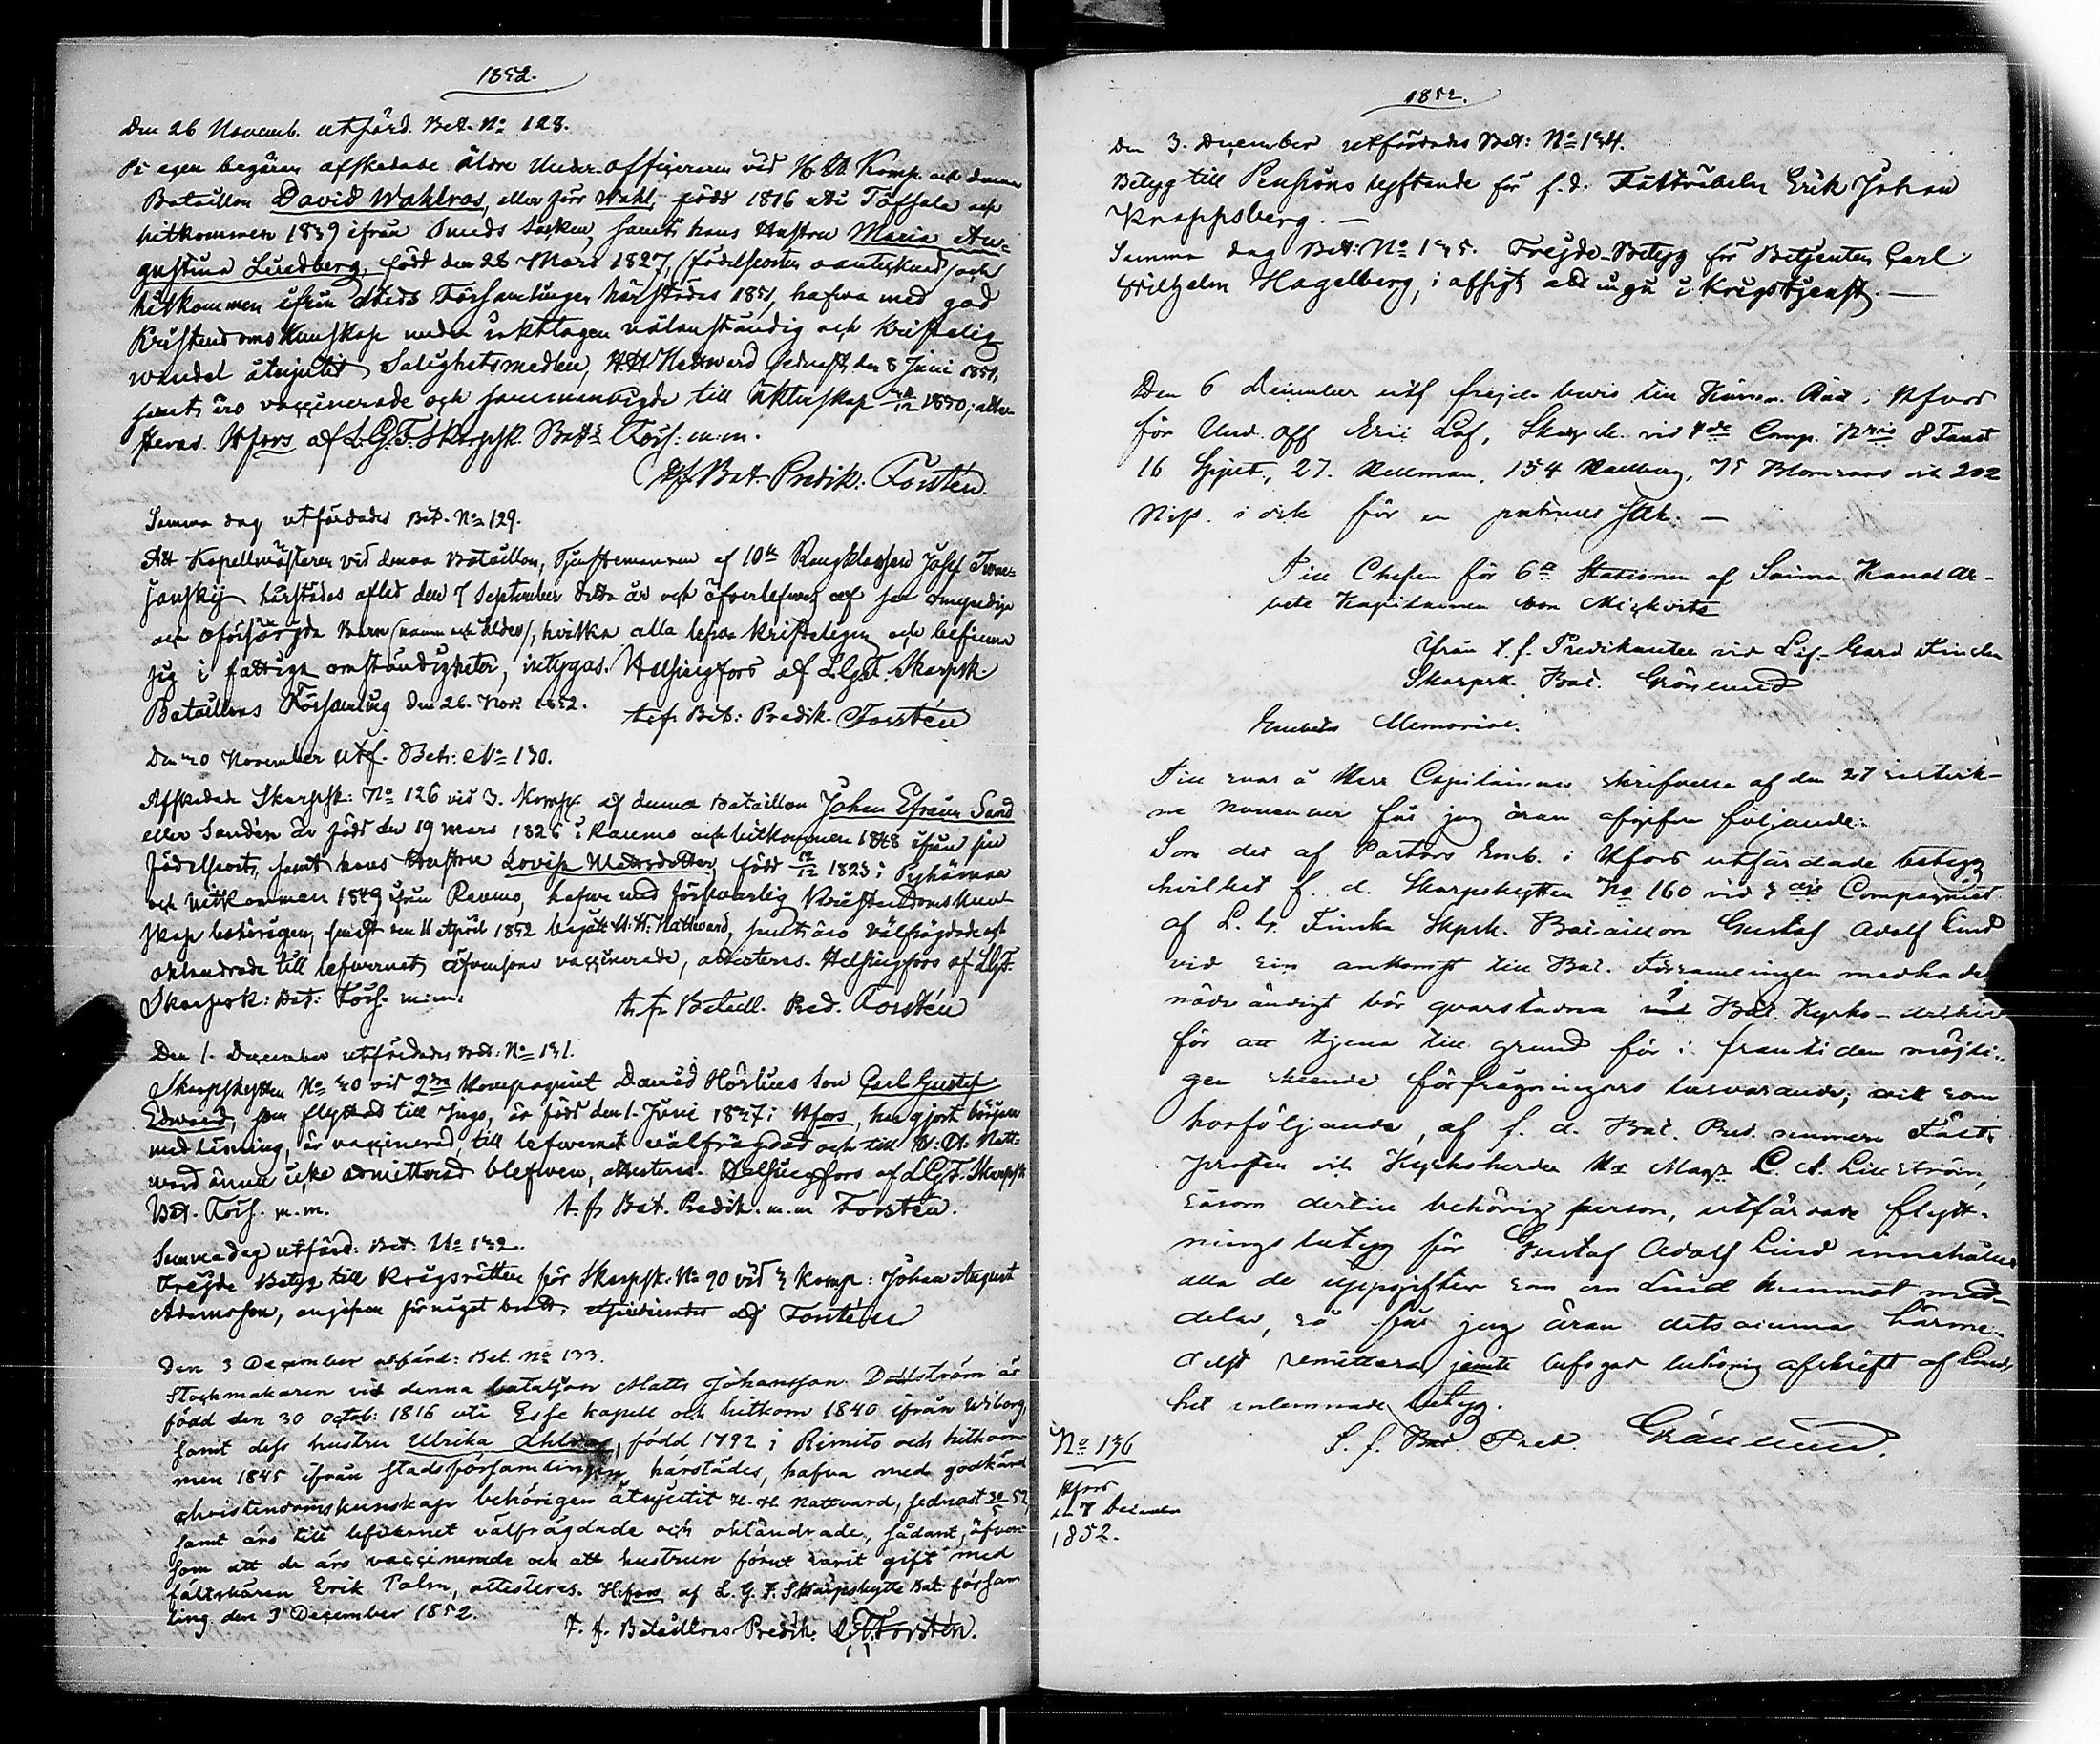 1852.
Den 26 Novemb. utfärd. Bet. No 128.
På egen begäran afskedade äldre Under-officeraren vid Komp. och denna
Bataillon David Wahlroos, eller förr Wahl, född 1816 uti Töfsala och
hitkommen 1839 ifrån Sunds Socken, samt hans Hustru Maria Au-
gustina Lundberg, född den 28 Mars 1827, (födelseorten oantecknad) och
hitkommen ifrån Stads Församlingen härstädes 1851, hafva med god
Kristendoms Kunskap under iakttagen välanständig och kristelig
wandel åtnjutit Salighetsmedlen, H. H. Nattvard sednast den 8 Juni 1851,
samt äro vaccinerade och sammanvigde till äktenskap 1850; atte-
steras. Hfors af L. G. F. Skarpsk. Bat:s Förs: m.m.
tf. Bat. Predik. Forstén.
Samma dag utfärdades Bet. No 129.
Att Kapellmästaren vid denna Bataillon, Tjenstemannen af 10de Rangklassen Josef Twar-
janskij härstädes afled den 7 September detta år och äfverlefves af sex omyndige
och oförsörgda Barn (namn och ålder), hvilka alla lefva kristeligen och befinna
sig i fattiga omständigheter, intygas. Helsingfors af L. G. F. Skarpsk.
Bataillons Församling den 26. Nov. 1852.
t. f. Bat: Predik. Forstén
Den 30 November utf. Bet: No 130.
Afskedade Skarpsk: No 126 vid 3. Komp. af denna Bataillon Johan Efraim Sand
eller Sandén är född den 19 Mars 1826 i Raumo och hitkommen 1848 ifrån sin
födelseort, samt hans Hustru Lovisa Mattsdotter, född 1823 i Pyhämaa
och hitkommen 1849 ifrån Raumo, hafva med försvarlig Kristendomskun-
skap behörigen, senast den 11 April 1852 begått H. H. Nattvard, samt äro välfrägdade och
oklandrade till lefwernet, äfvensom vaccinerade, attesteras. Helsingfors af L. G. F.
Skarpsk: Bat: Förs. m:m:
t. f. Bataill. Pred. Forstén
Den 1. December utfärdades Bet: No 131.
Skarpskytten No 30 vid 2dra Kompagniet David Hörlins son Carl Gustaf
Edward, som flyttad till Ingo, är född den 1. Juni 1837 i Hfors, har gjort början
med läsning, är vaccinerad, till lefvernet välfrägdad och till H. H. Natt-
ward ännu icke admitterad blefven, attesteras. Helsingfors af L. G. F. Skarpsk
Bat. Förs. m.m.
t. f. Bat. Predik. m.m Forstén.
Samma dag utfärd: Bet: No 132.
Frejde Betyg till Krigsrätten för Skarpsk: No 90 vid 3 Komp: Johan August
Adamsson, angifven för något brott, af Forstén
Den 3 December utfärd: Bet. No 133.
Stockmakaren vid denna bataljon Matts Johansson Dahlström är
född den 30 octob: 1816 uti Esse kapell och hitkom 1840 ifrån Wiborg,
samt dess hustru Ulrika Ahlroos, född 1792 i Rimito och hitkom-
men 1845 ifrån stadsförsamlingen härstädes, hafva med godkänd
christendomskunskap behörigen åtnjutit H. H. nattvard, sednast 52,
samt äro till lefvernet välfrägdade och oklandrade, sådant, äfven-
som att de äro vaccinerade och att hustrun förut varit gift med
fältskären Erik Palm, attesteras. H:fors af L. G. F. Skarpskytte Bat. försam
ling den 3 December 1852.
t. f. Bataillons Predik. Forstén.
1852.
Den 3. December utfärdades Bet: No 134.
Betyg till Pensions lyftande för f. d. Fältväbeln Erik Johan
Knappsberg. —
Samma dag Bet: No 135. Frejde-Betyg för Betjenten Carl
Wilhelm Hagelberg, i afsigt att ingå i Krigstjenst. —
Den 6 December utf frejde bevis till Kämn. Rätt i Hfors
för Und. Off Eric Löf, Skarpsk. vid 4de Comp. Nris 8 Faust
16 Spjut, 27. Kullman, 154 Kallberg, 75 Blomroos och 202
Nisp. i och för en polisiæ sak. —
Till Chefen för 6a Stationen af Saima Kanal Ar-
bete Kapitainen von Mickwitz
ifrån t. f. Predikanten vid Lif-Gard. Finska
Skarpsk. Bat. Grönlund
Embets Memorial.
Till svar å Herr Capitainens skrifvelse af den 27 sistvik-
ne November får jag äran afgifva följande:
Som det af Pastors Emb. i Hfors utfärdade betyg
hvilket f. d. Skarpskytten No 160 vid 3dje Compagniet
af L. G. Finska Skpsk. Bataillon Gustaf Adolf Lind
vid sin ankomst till Bat. Församlingen medhade
nödvändigt bör qvarstadna i Bat. Kyrko-archiv
för att tjena till grund för i framtiden möjli-
gen skeende förfrågningars besvarande, ock som
hosföljande, af f. d. Bat. Pred. numera Fält-
prosten och Kyrkoherden Hr Magr L. A. Lillström,
såsom dertill behörig person, utfärdade flytt-
nings betyg för Gustaf Adolf Lind innehåller
alla de uppgifter som om Lind kunnat med-
delas, så får jag äran detsamma härme-
delst remittera jemte bifogad behörig afskrift af Lunds
hit inlemnade betyg.
T. f. Bat. Pred. Grönlund.
No 136
Hfors
den 7 December
1852.